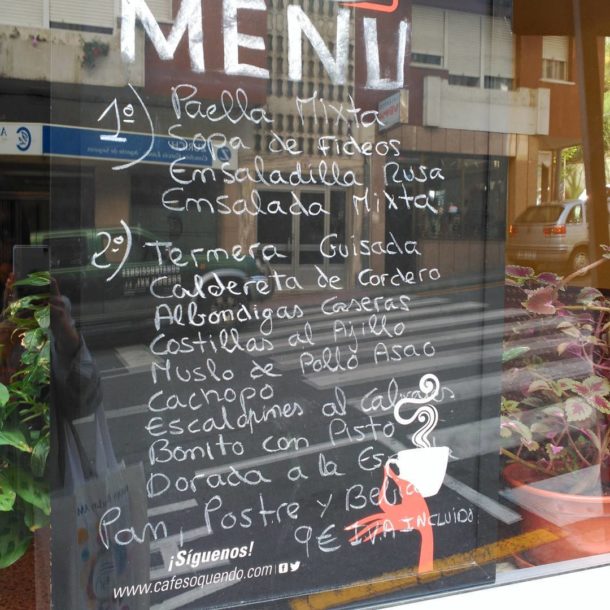 MENÚ
1º) Paella Mixta
Sopa de Fideos
Ensaladilla Rusa
Ensalada Mixta
2º) Termera Guisada
Caldereta de Cordero
Albondigas Caseras
Costillas al Ajillo
Muslo de Pollo Asao
Cachopo
Escalopines al
Bonito con Pisto
Dorada a la
Pan, Postre y
9€ IVA INCLUIDO
¡Síguenos!
www.cafesoquendo.com